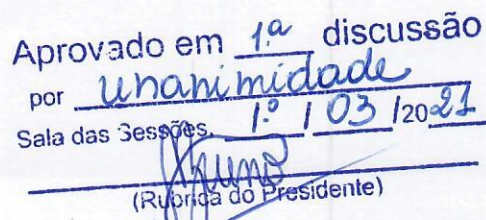 Aprovado em 1ª discussão
por unanimidade
Sala das Sessões, 1º / 03 /2021
(Rubrica do Presidente)